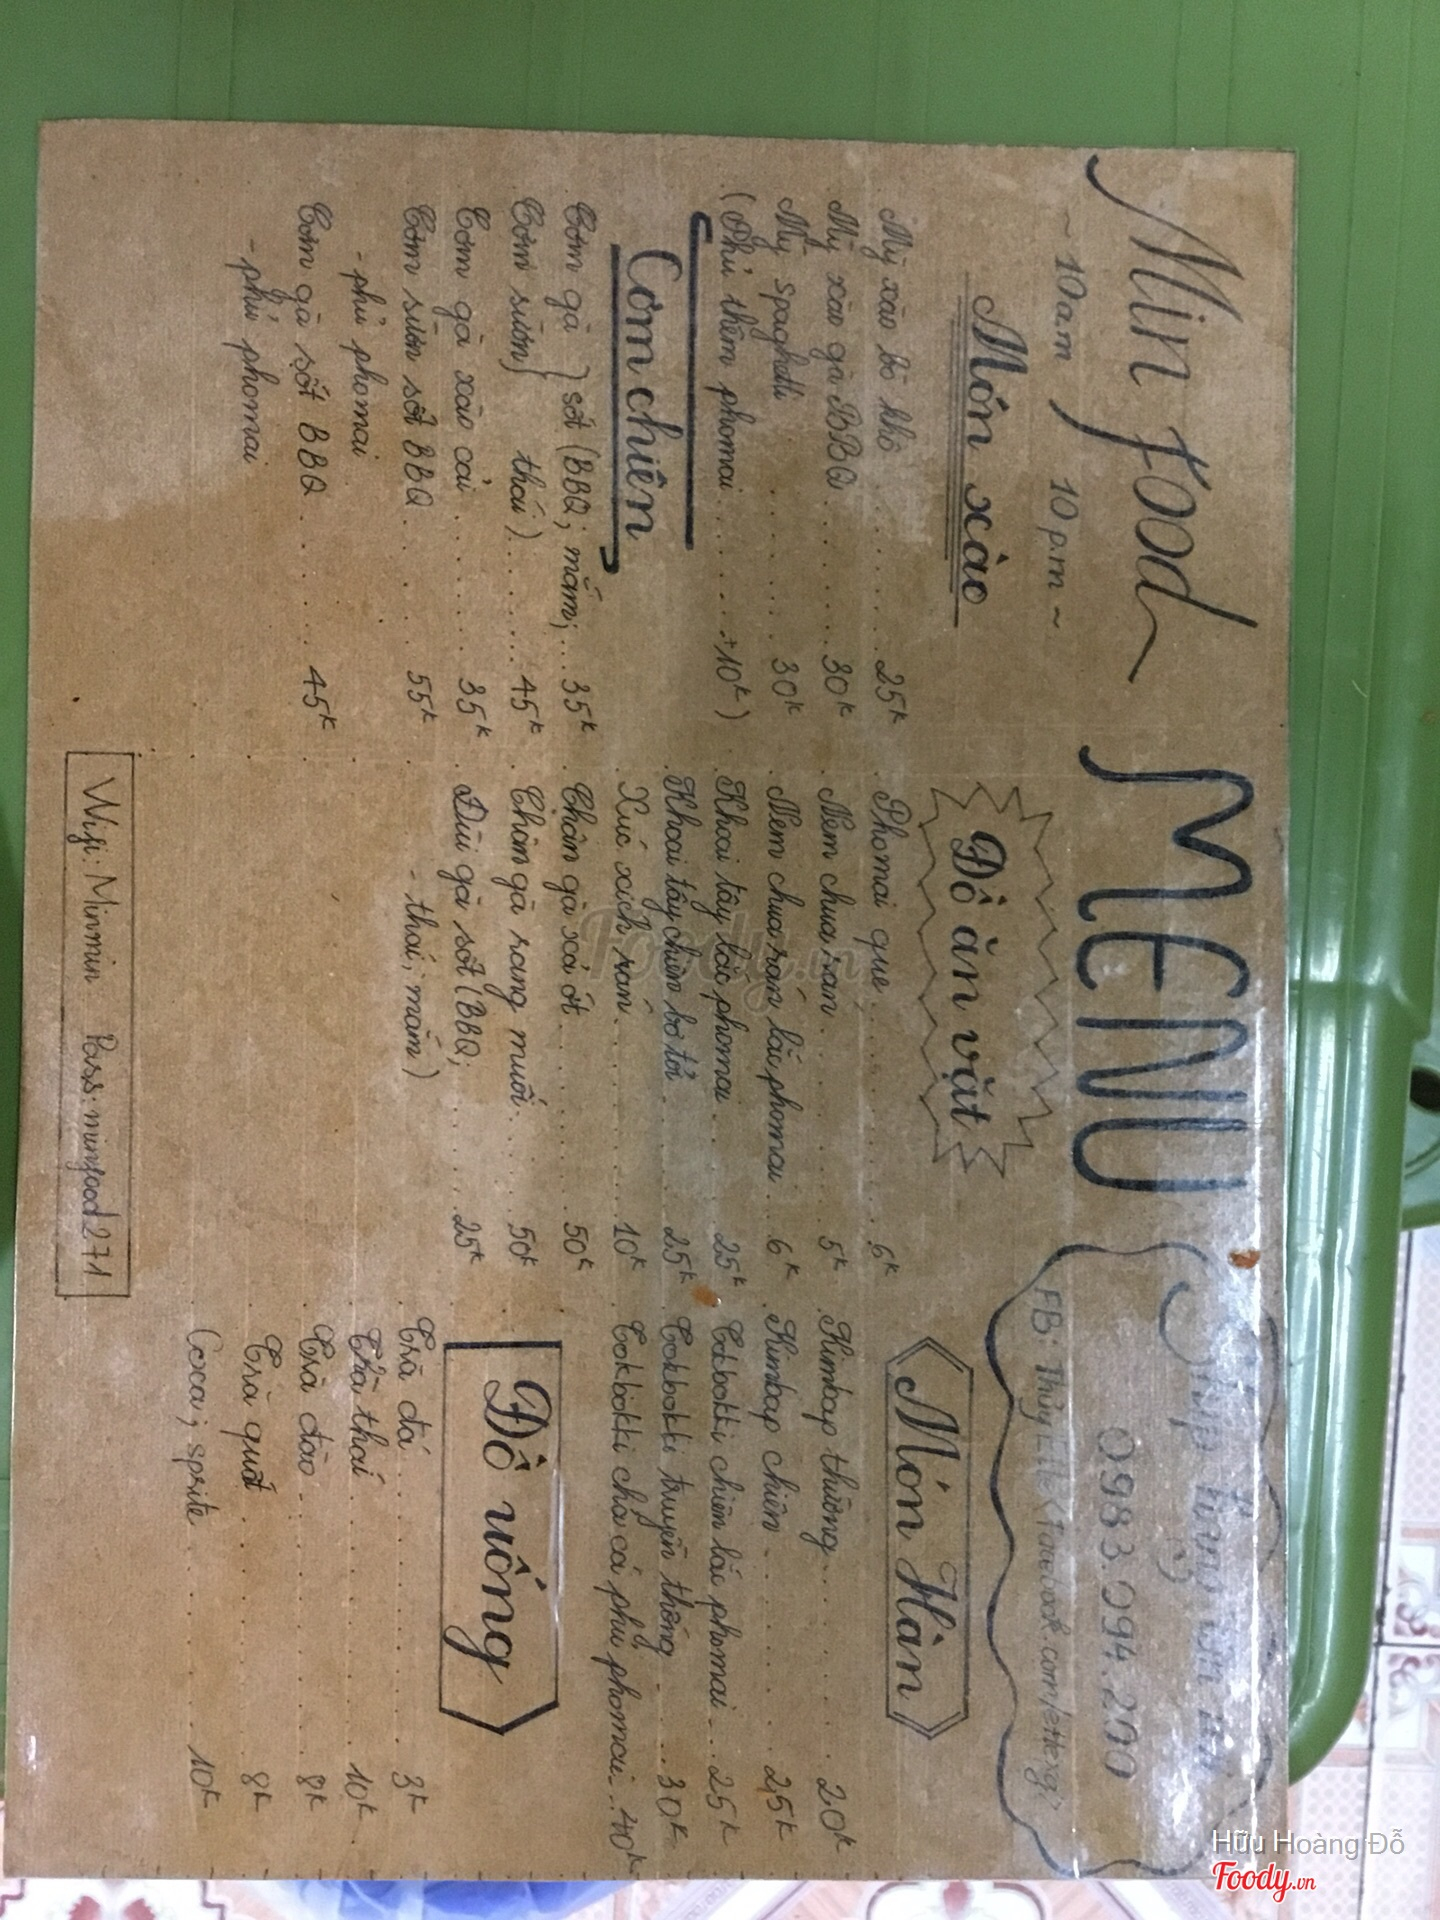 Min food
~ 10am 10pm ~
MENU
Ship
0983.094.200
FB: Thủy
Món xào
Mỳ xào bò khô 25k
Mỳ xào gà BBQ 30k
Mỳ spaghetti 30k
(Phủ thêm phomai +10k)
Cơm chiên
Cơm gà } sốt (BBQ; mắm; 35k
Cơm sườn } thái) 45k
Cơm gà xào cải 35k
Cơm sườn sốt BBQ 55k
- phủ phomai
Cơm gà sốt BBQ 45k
- phủ phomai
Đồ ăn vặt
Phomai que 6k
Nem chua rán 5k
Nem chua rán lắc phomai 6k
Khoai tây lắc phomai 25k
Khoai tây chiên bơ tỏi 25k
Xúc xích rán 10k
Chân gà xả ớt 50k
Chân gà rang muối 50k
Đùi gà sốt (BBQ; 25k
- thái; mắm)
Món Hàn
Kimbap thường 20k
Kimbap chiên 25k
Tokbokki chiên lắc phomai 25k
Tokbokki truyền thống 30k
Tokbokki chả cá phủ phomai 40k
Đồ uống
Trà đá 3k
Trà thái 10k
Trà đào 8k
Trà quất 8k
Coca; sprite 10k
Wifi: Minmin Pass: minfood271
Foody.vn
Hữu Hoàng Đỗ
Foody.vn